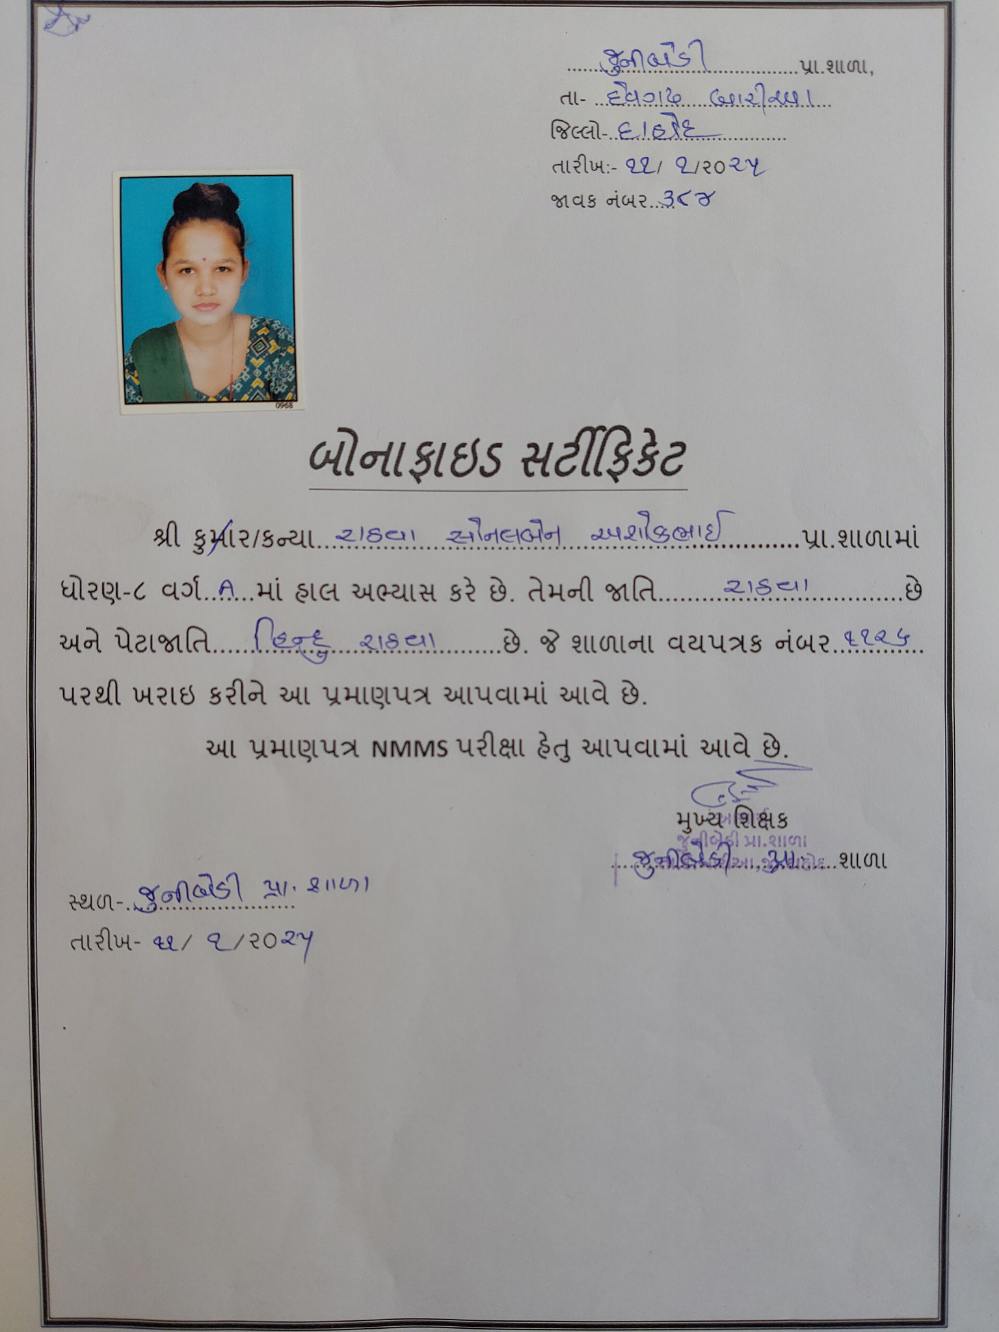 જુનીબેડી પ્રા.શાળા,
તા- દેવગઢ બારીઆ
જિલ્લો- દાહોદ
તારીખ:- ૧૧/ ૧/૨૦૨૫
જાવક નંબર...૩૮૪
0968
બોનાફાઇડ સર્ટીફિકેટ
શ્રી કુમાર/કન્યા...રાઠવા સોનલબેન અશોકભાઈ...પ્રા.શાળામાં
ધોરણ-૮ વર્ગ..A...માં હાલ અભ્યાસ કરે છે. તેમની જાતિ...રાઠવા...છે
અને પેટાજાતિ...હિન્દુ રાઠવા...છે. જે શાળાના વયપત્રક નંબર..૧૧૨૬
પરથી ખરાઇ કરીને આ પ્રમાણપત્ર આપવામાં આવે છે.
આ પ્રમાણપત્ર NMMS પરીક્ષા હેતુ આપવામાં આવે છે.
મુખ્ય શિક્ષક
જુનીબેડી પ્રા.શાળા
જુનીબેડી...પ્રા...શાળા
સ્થળ-..જુનીબેડી પ્રા. શાળા
તારીખ- ૧૧/ ૧/૨૦૨૫